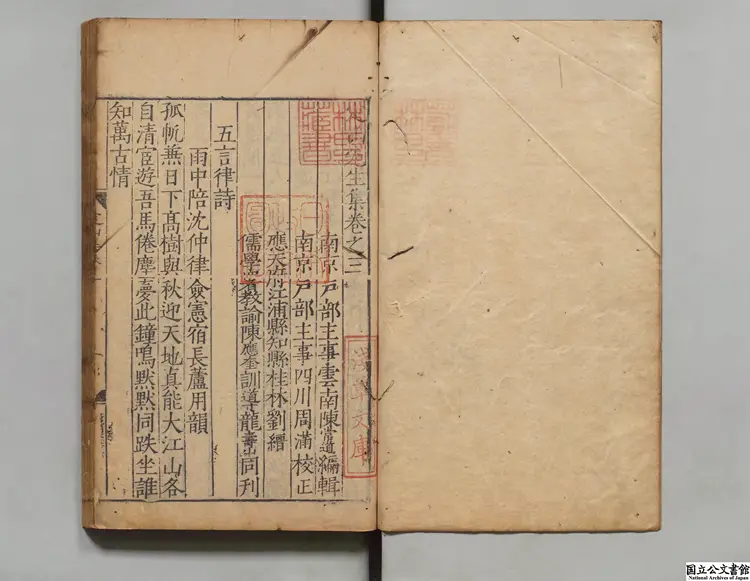 定山先生集卷之三
南京戶部主事雲南陳常道編輯
南京戶部主事四川周滿校正
應天府江浦縣知縣桂林劉縉
儒學署教諭陳應奎訓導龍壽山同刊
五言律詩
雨中陪沈仲律僉憲宿長蘆用韻
孤帆無日下髙樹與秋迎天地真能大江山各
自清宦遊吾馬倦摩戛此鐘鳴默默同趺坐誰
知萬古情
文庫
国立公文書館
National Archives of Japan